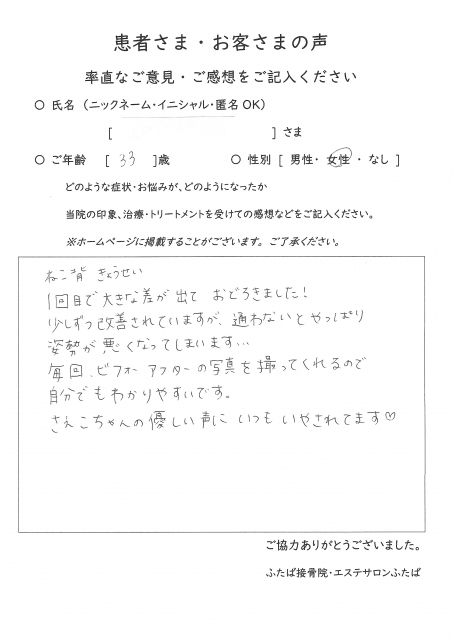 患者さま・お客さまの声
率直なご意見・ご感想をご記入ください
○ 氏名（ニックネーム・イニシャル・匿名 OK）
[ ] さま
○ ご年齢 [ 33 ]歳 ○ 性別 [ 男性・ 女性 ・ なし ]
どのような症状・お悩みが、どのようになったか
当院の印象、治療・トリートメントを受けての感想などをご記入ください。
※ホームページに掲載することがございます。ご了承ください。
ねこ背 きょうせい
1回目で大きな差が出て おどろきました！
少しずつ改善されていますが、通わないとやっぱり
姿勢が悪くなってしまいます…
毎回、ビフォーアフターの写真を撮ってくれるので
自分でもわかりやすいです。
さえこちゃんの優しい声に いつも いやされてます♡
ご協力ありがとうございました。
ふたば接骨院・エステサロンふたば